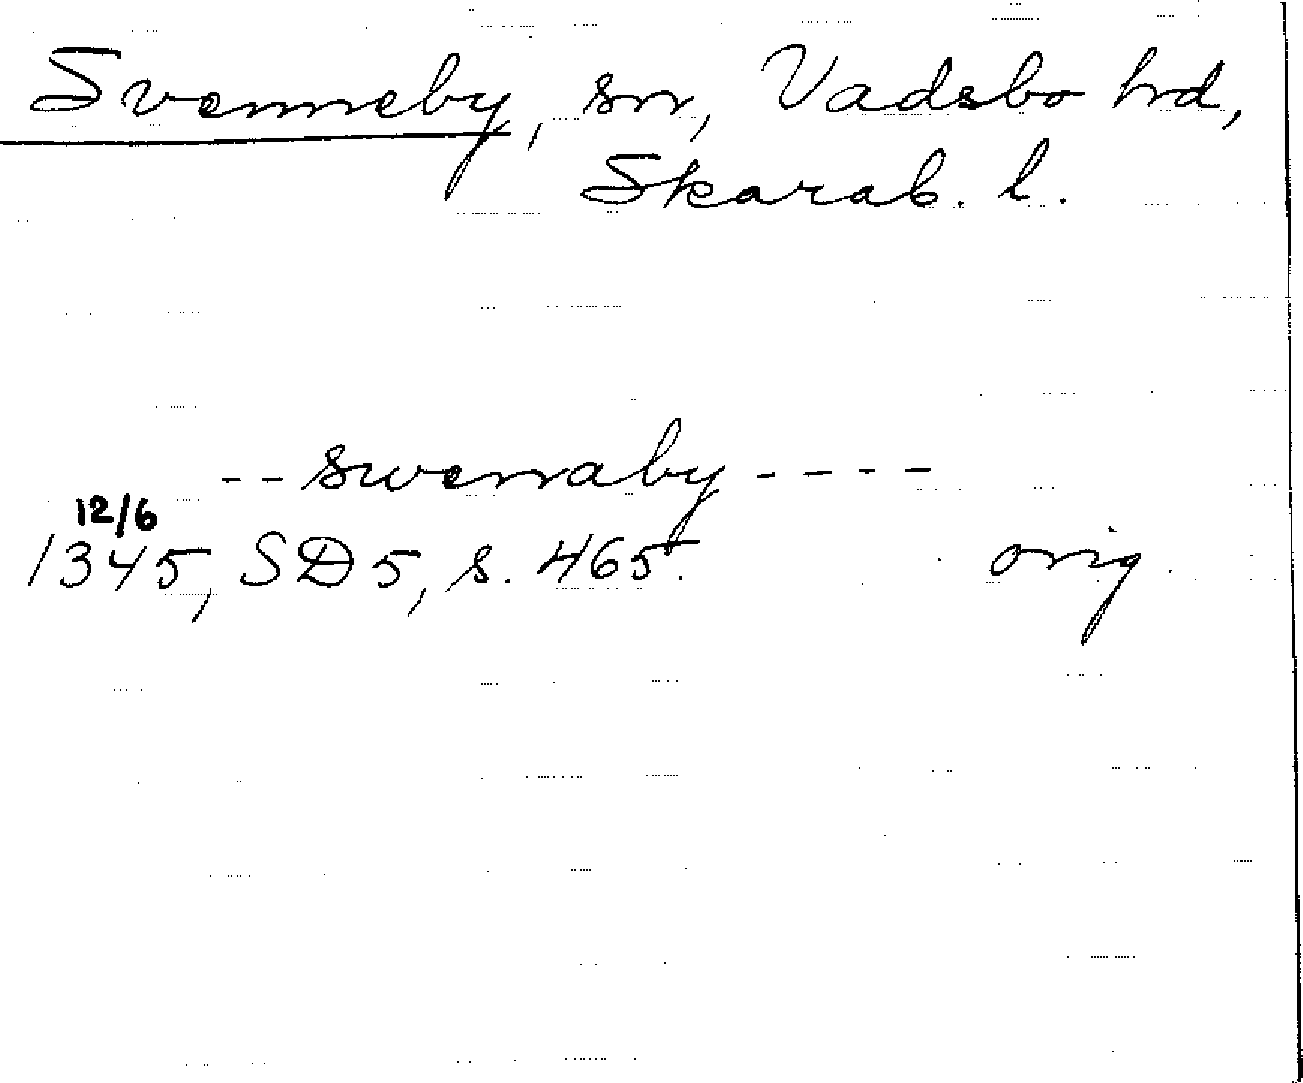 Svenneby, sn, Vadsbo hd,
Skarab. l.
-- swenaby ----
12/6
1345, SD5, s. 465. orig.